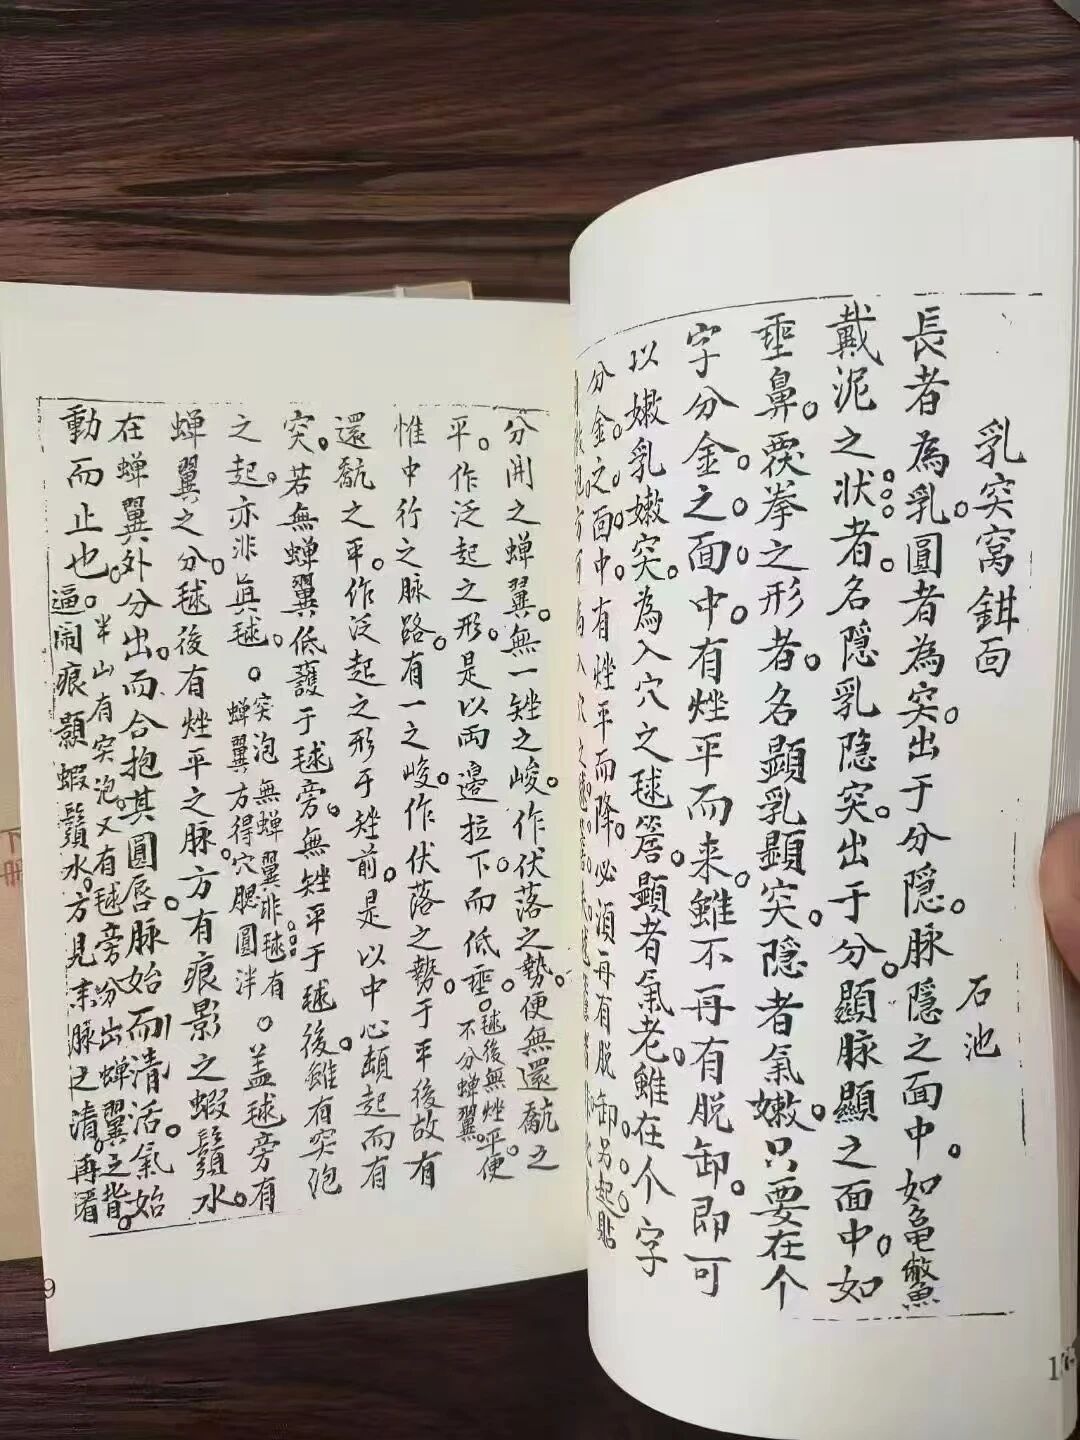 乳突窩鉗面
石池
長者為乳。圓者為突。出于分隱。脉隱之面中。如龜鱉
戴泥之状者。名隱乳隐突。出于分。顯脉顯之面中。如
垂鼻。覆拳之形者。名顯乳顯突。隐者氣嫩。只要在个
字分金。之面中。有㘴平而来。雖不再有脱卸。即可
以嫩乳嫩突。為入穴之毬簷。顯者氣老。雖在个字
分金。之面。中。有㘴平而降。必湏再有脱卸。另起
分開之蟬翼。無一䂳之峻。作伏落之勢。便無還㼚之
平。作泛起之形。是以両邉拉下。而低垂。毬後無㘴平便
不分蟬翼。
惟中行之脉路。有一之峻。作伏落之勢。于平後故有
還㼚之平。作泛起之形于䂳前。是以中心頓起而有
突。若無蟬翼低護于毬旁。無䂳平于毬後。雖有突泡
之起。亦非真毬。突泡無蟬翼非毬。有
蟬翼方得穴腮圓泮。盖毬旁有
蟬翼之分。毬後有㘴平之脉方有痕影之蝦鬚水。
在蟬翼外分出。而合抱其圓唇。脉始而清活。氣始
動而止也。半山有突泡。又有毬旁分出蟬翼之背。
逼闹痕顯蝦鬚水。方見来脉之清。再看
下冊
9